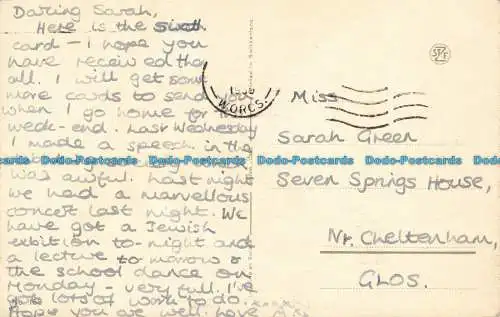 Daring Sarah,
Here is the sixth
card – I hope you
have received tha
all. I will get some
more cards to send you
when I go home for the
week-end. Last Wednesday
I made a speech in the
was awful. Last night
we had a marvellous
concert last night. We
have got a Jewish
exbition to-night and
a lecture to morow &
the school dance on
Monday – very full. I've
got lots of work to do.
Hope you are well. have
WORCS.
Miss
Sarah Green
Seven Springs House,
Nr. Cheltenham,
GLOS.
Dodo-Postcards Dodo-Postcards Dodo-Postcards Dodo-Postcards
Printed in Switzerland